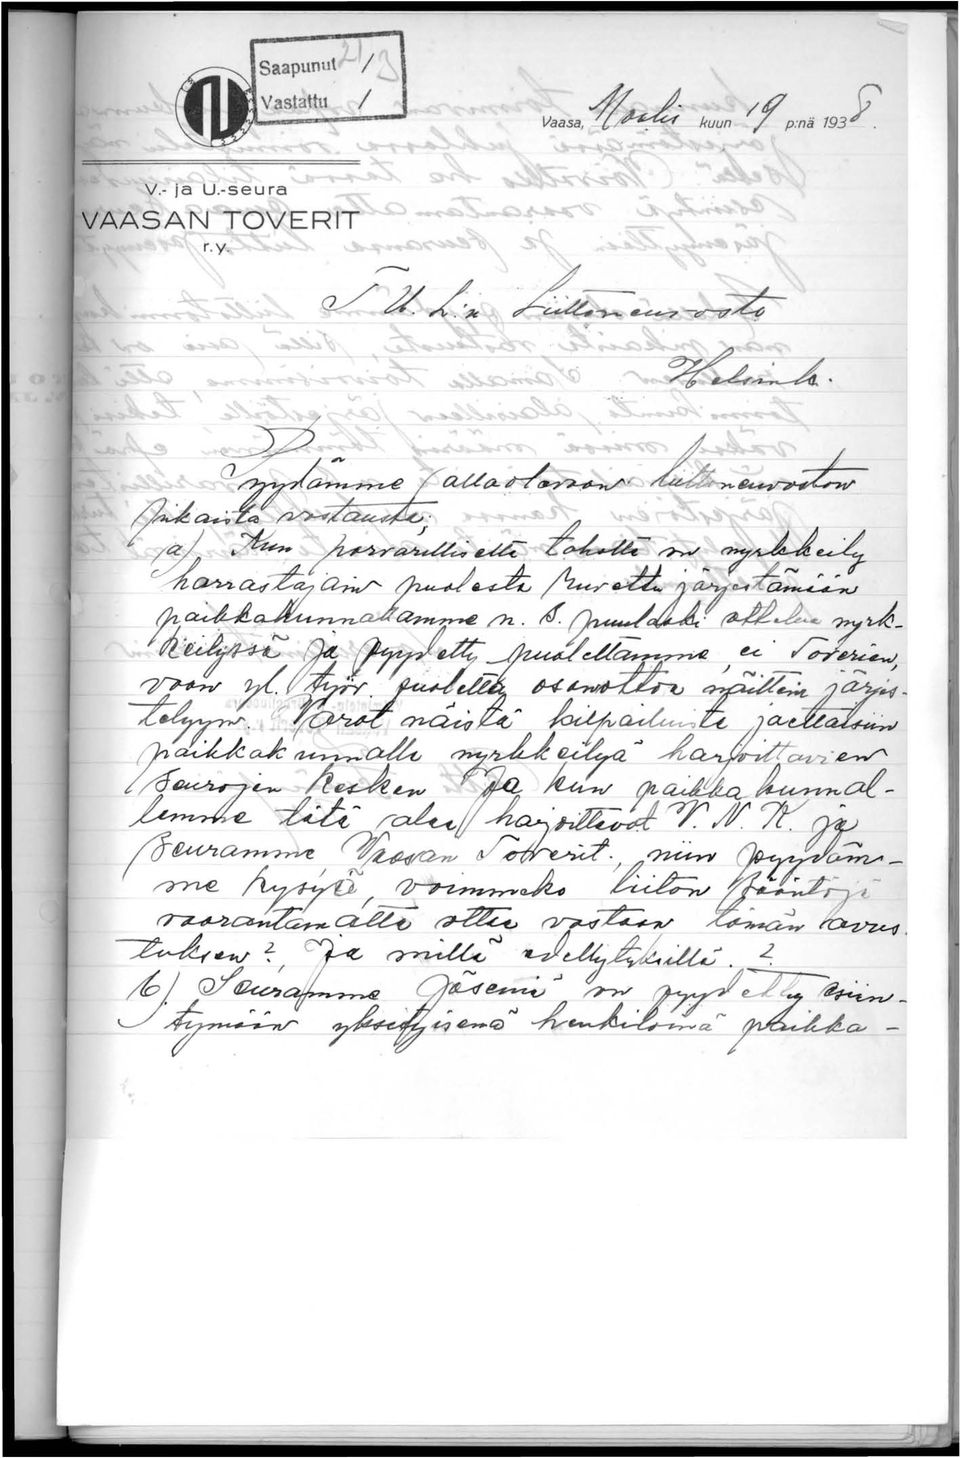 Saapunut 21/3
Vastattu /
Vaasa, Maalis kuun 19 p:nä 1938.
V.- ja U.-seura
VAASAN TOVERIT
r.y.
T.U.L:n Liittoneuvosto
Helsinki.
Pyydämme allaolevaan liittoneuvoston
pikaista vastausta;
a) Kun porvarilliselta taholta on nyrkkeily
harrastajain puolesta ruvettu järjestämään
paikkakunnallamme n. s. puulaaki ottelua nyrk-
keilyssä ja pyydetty puoleltamme, ei Toverien,
vaan yl. työv. puolelta osanottoa näitten järjes-
telyyn. Varat näistä kilpailuista jaettaisiin
paikkakunnalla nyrkkeilyä harjoittavien
seurojen kesken ja kun paikkakunnal-
lamme tätä alaa harjoittavat V. N. K. ja
seuramme Vaasan Toverit., niin pyydäm-
me kysyä, voimmeko liiton sääntöjä
vaarantamatta ottaa vastaan tämän avus
tuksen?, Ja millä edellytyksillä. ?
b). Seuramme jäseniä on pyydetty esiin-
tymään yksityisenä henkilöinä paikka-